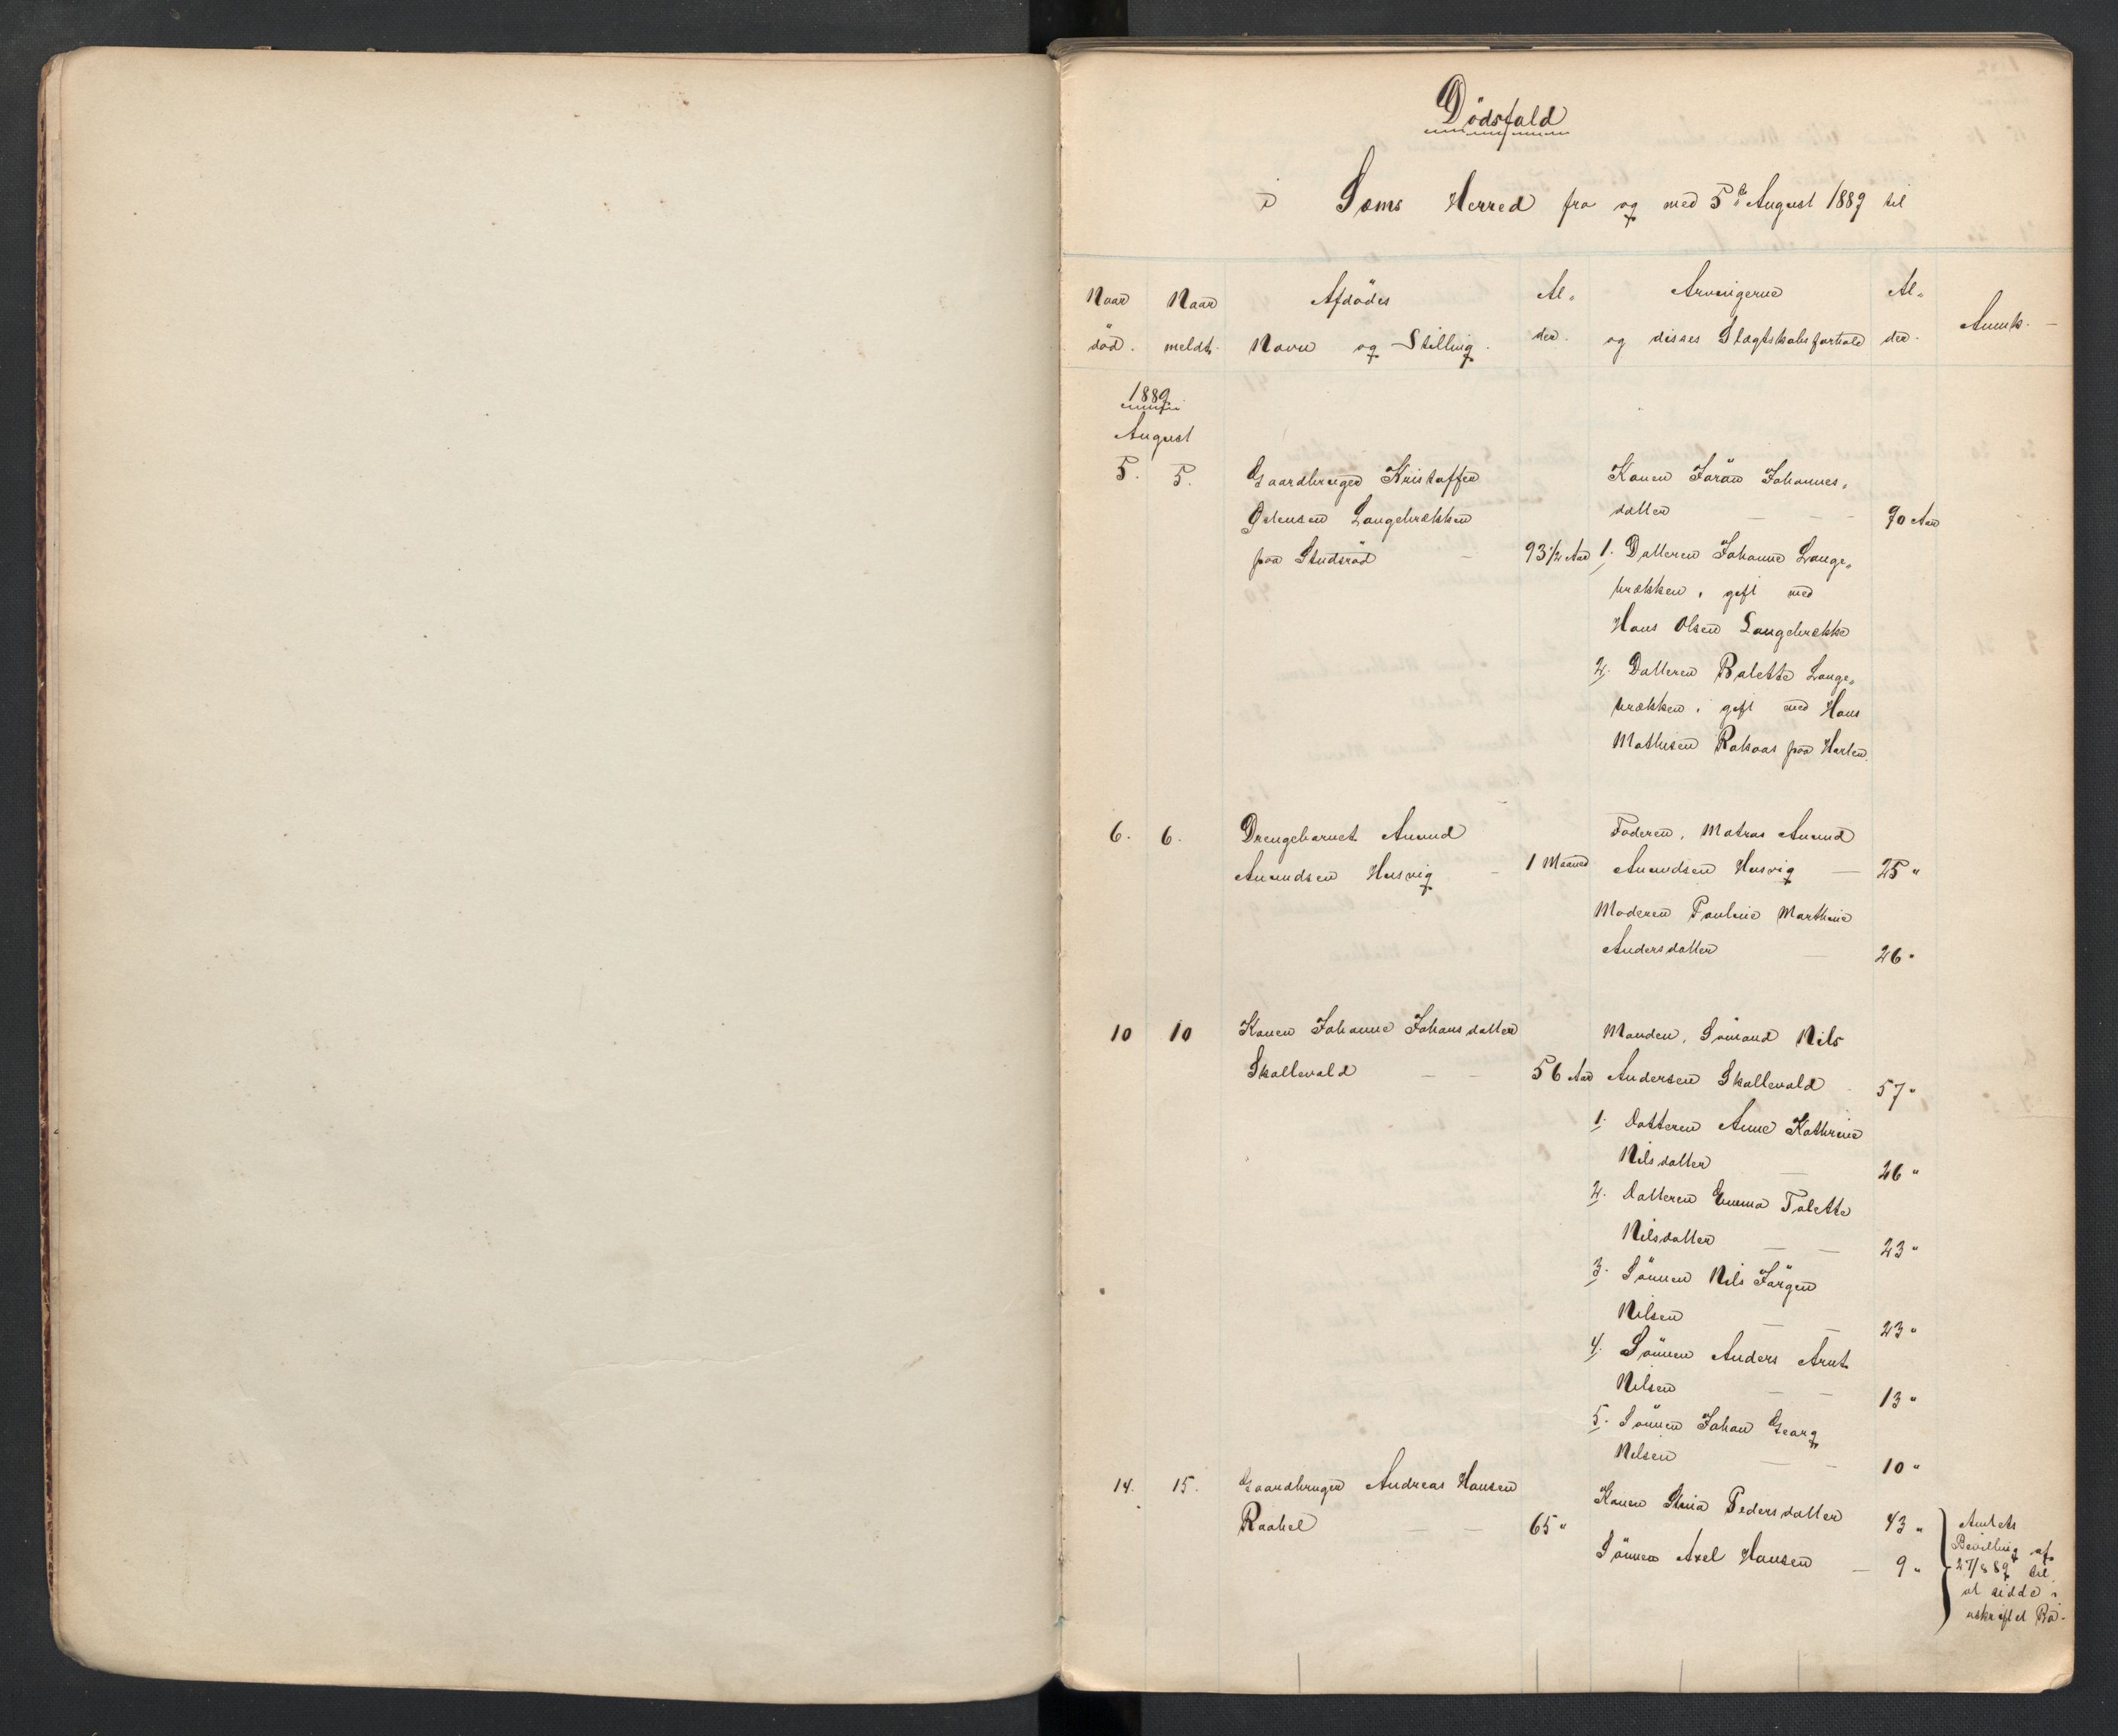 Dödsfald
i Sems Herred fra og med 5te August 1889 til
Naar död.
Naar meldt.
Afdödes Navn og Stilling.
Al„ der.
Arvingerne og disses Slægtskabsforhold
Al„ der.
Anmk.
1889
August
5. 5. Gaardbruger Kristoffer
Konen Jörån Johannes„
datter — — 70 Aar
Langebrækken
paa Studsröd — 93 1/2 Aar
1. Datteren Johanne Lange„
brækken, gift med
Hans Olsen Langebrække
2. Datteren Lange„
brækken, gift med Hans
Mathisen Rakaas paa Herlen.
6. 6. Drengebarnet Amund
Amundsen Husvig — 1 Maaned
Faderen, Matros Amund
Amundsen Husvig — 25 "
Moderen Pauline Marthine
Andersdatter — 26 "
10 10 Konen Johanne Johansdatter
Skallevald — — 56 Aar
Manden, Sömand Nils
Andersen Skallevald 57 "
1. Datteren Anne Kathrine
Nilsdatter — 26 "
2. Datteren Emma Talette
Nilsdatter — — 23 "
3. Sönnen Nils Jörgen
Nilsen — — 23 "
4. Sönnen Anders Arnt
Nilsen — — 13 "
5. Sönnen Johan Georg
Nilsen — — 10 "
14. 15. Gaardbruger Andreas Hansen
Raakel — — 65 "
Konen Stina Pedersdatter 43 "
Sönnen Axel Hansen — 9 "
Amtets
Bevilling af
27/8 89 til
at sidde i
uskiftet Bo.